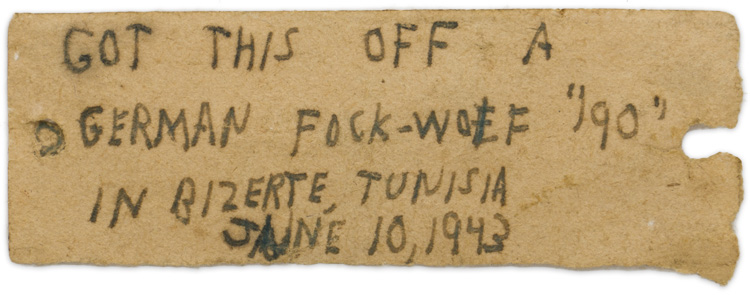 GOT THIS OFF A
GERMAN FOCK-WOLF "190"
IN BIZERTE, TUNISIA
JUNE 10, 1943